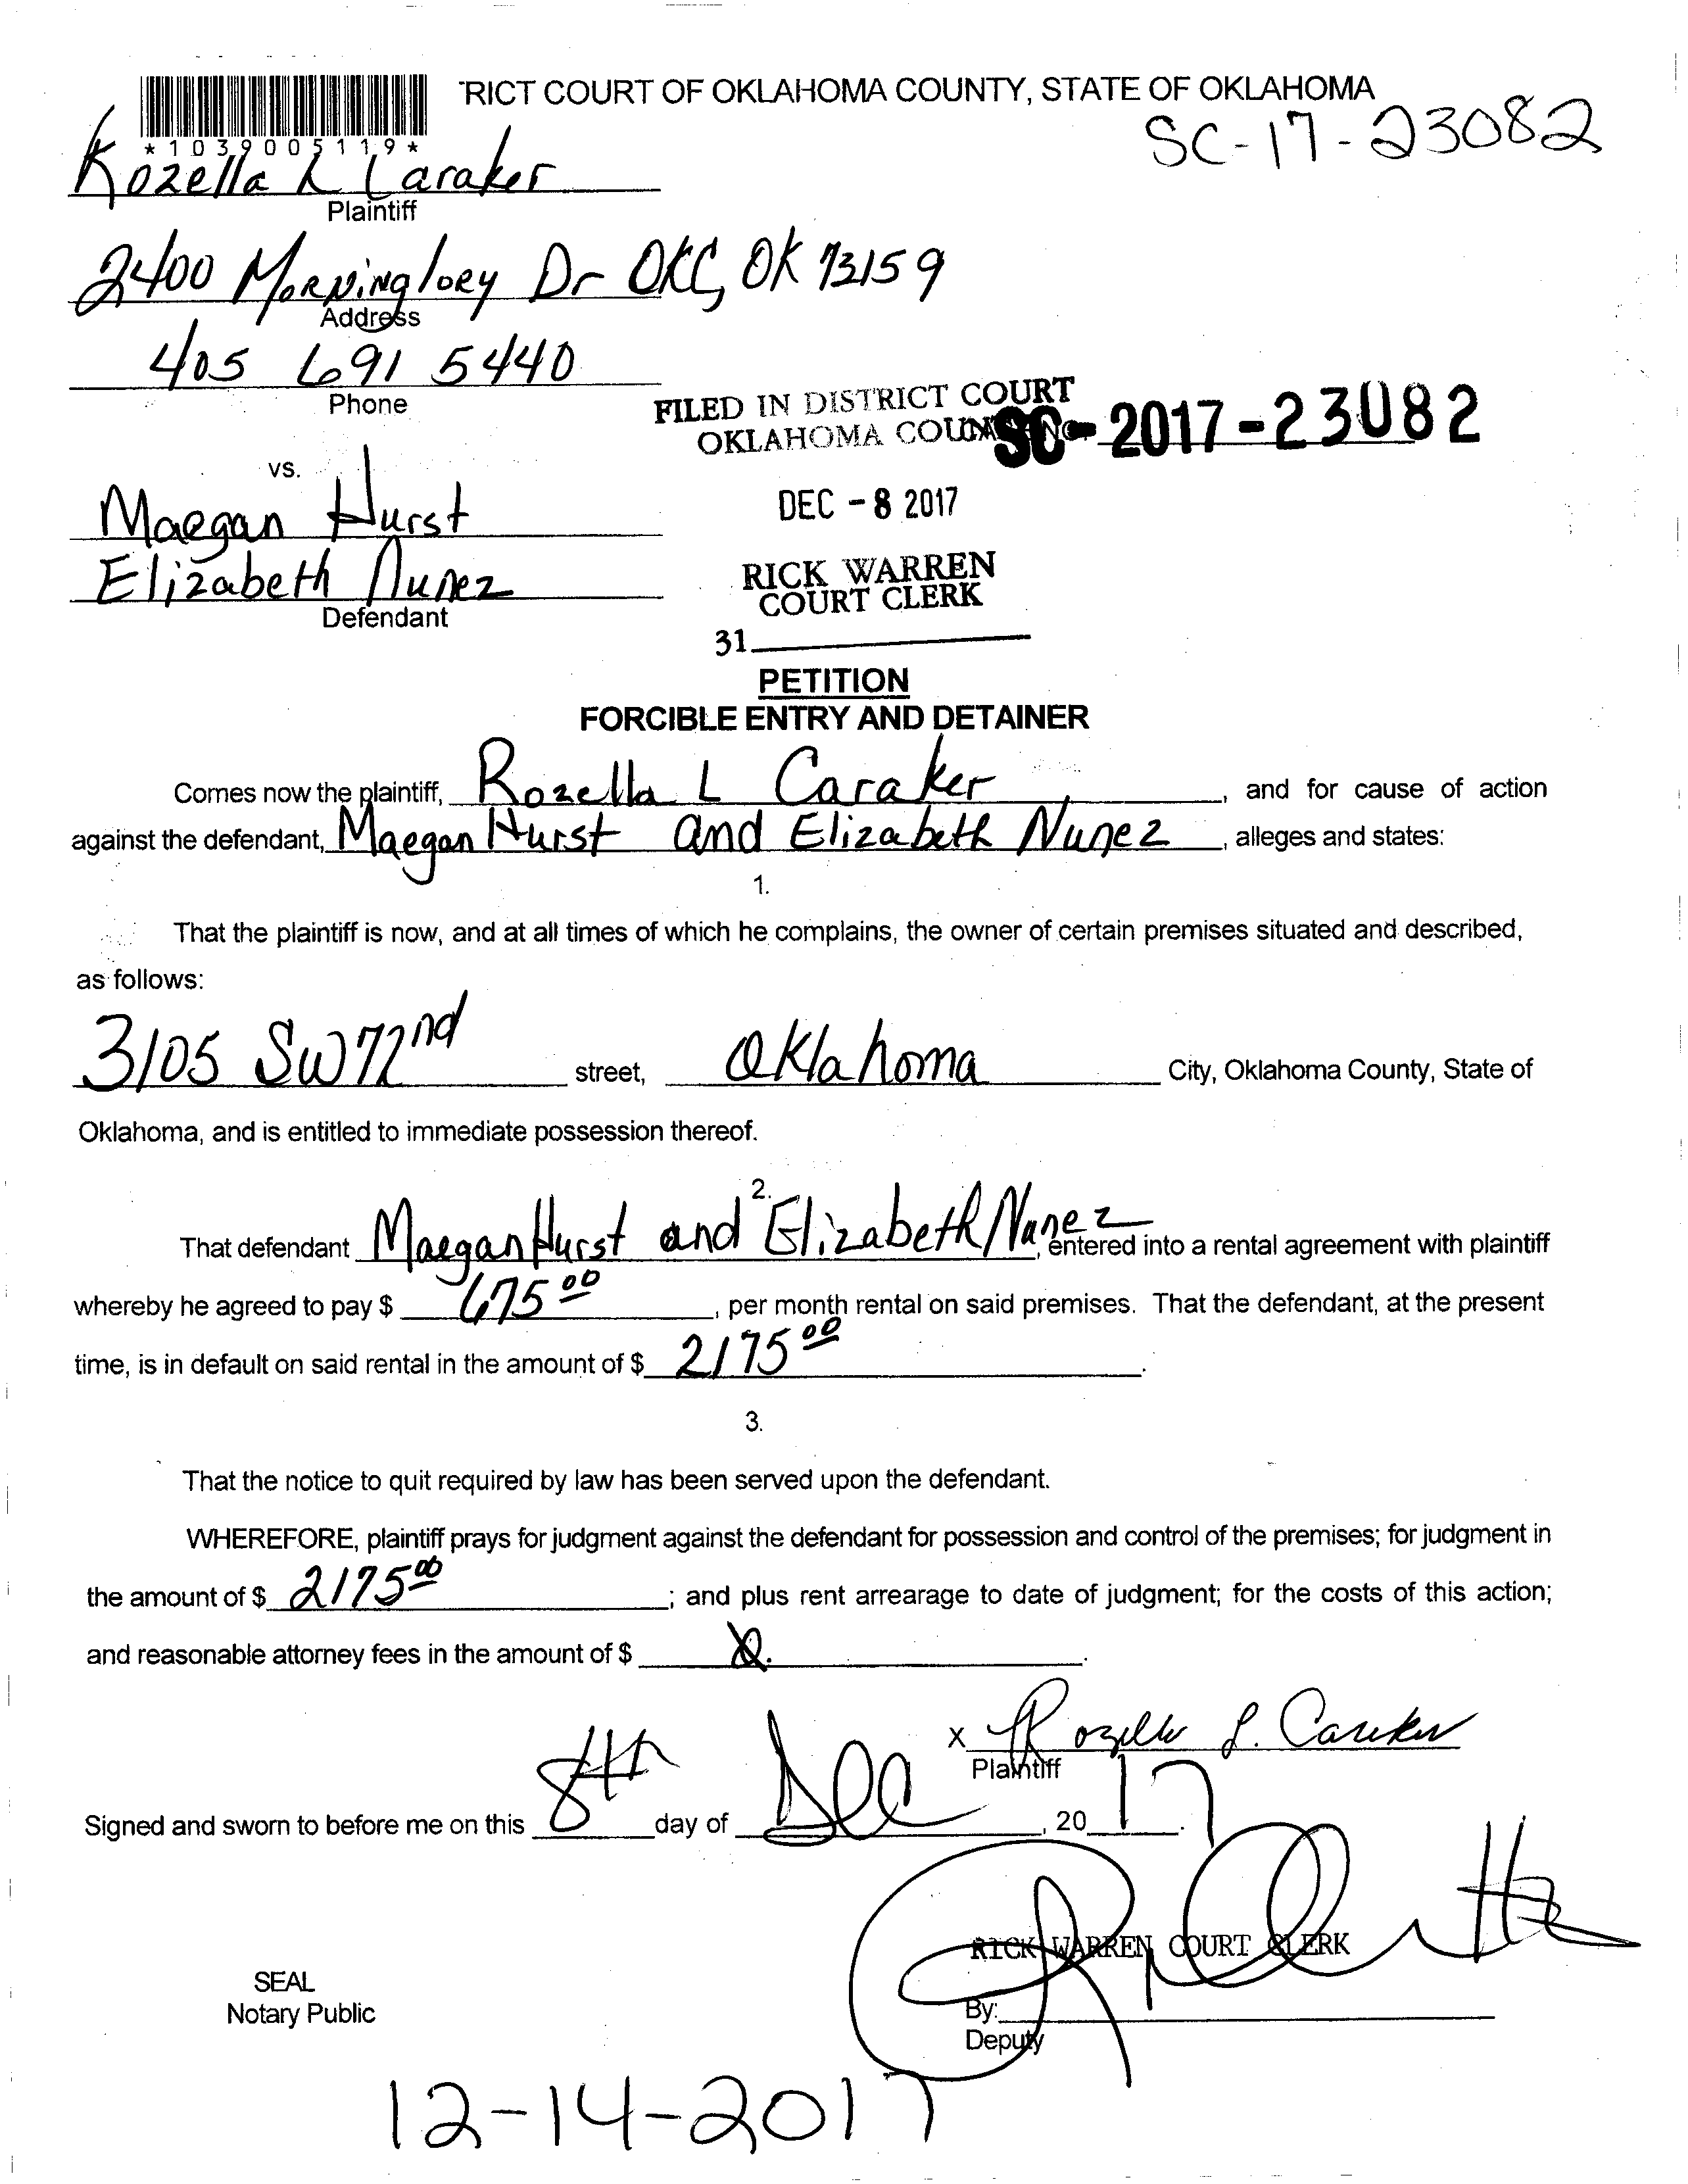 RICT COURT OF OKLAHOMA COUNTY, STATE OF OKLAHOMA
*1039005119*
SC-17-23082
Rozella L Caraker
Plaintiff
2400 Morninglory Dr OKC, OK 73159
Address
405 691 5440
Phone
FILED IN DISTRICT COURT
OKLAHOMA COUN
SC-2017-23082
vs.
DEC -8 2017
Maegan Hurst
Elizabeth Nunez
Defendant
RICK WARREN
COURT CLERK
31
PETITION
FORCIBLE ENTRY AND DETAINER
Comes now the plaintiff, Rozella L Caraker, and for cause of action
against the defendant, Maegan Hurst and Elizabeth Nunez, alleges and states:
1.
That the plaintiff is now, and at all times of which he complains, the owner of certain premises situated and described,
as follows:
3105 SW 72nd street, Oklahoma City, Oklahoma County, State of
Oklahoma, and is entitled to immediate possession thereof.
2.
That defendant Maegan Hurst and Elizabeth Nunez, entered into a rental agreement with plaintiff
whereby he agreed to pay $ 675 00, per month rental on said premises. That the defendant, at the present
time, is in default on said rental in the amount of $ 2175 00.
3.
That the notice to quit required by law has been served upon the defendant.
WHEREFORE, plaintiff prays for judgment against the defendant for possession and control of the premises; for judgment in
the amount of $ 2175 00; and plus rent arrearage to date of judgment; for the costs of this action;
and reasonable attorney fees in the amount of $
x Rozella L. Caraker
Plaintiff
Signed and sworn to before me on this 8th day of Dec, 20 17.
RICK WARREN COURT CLERK
SEAL
Notary Public
By:
Deputy
12-14-2017